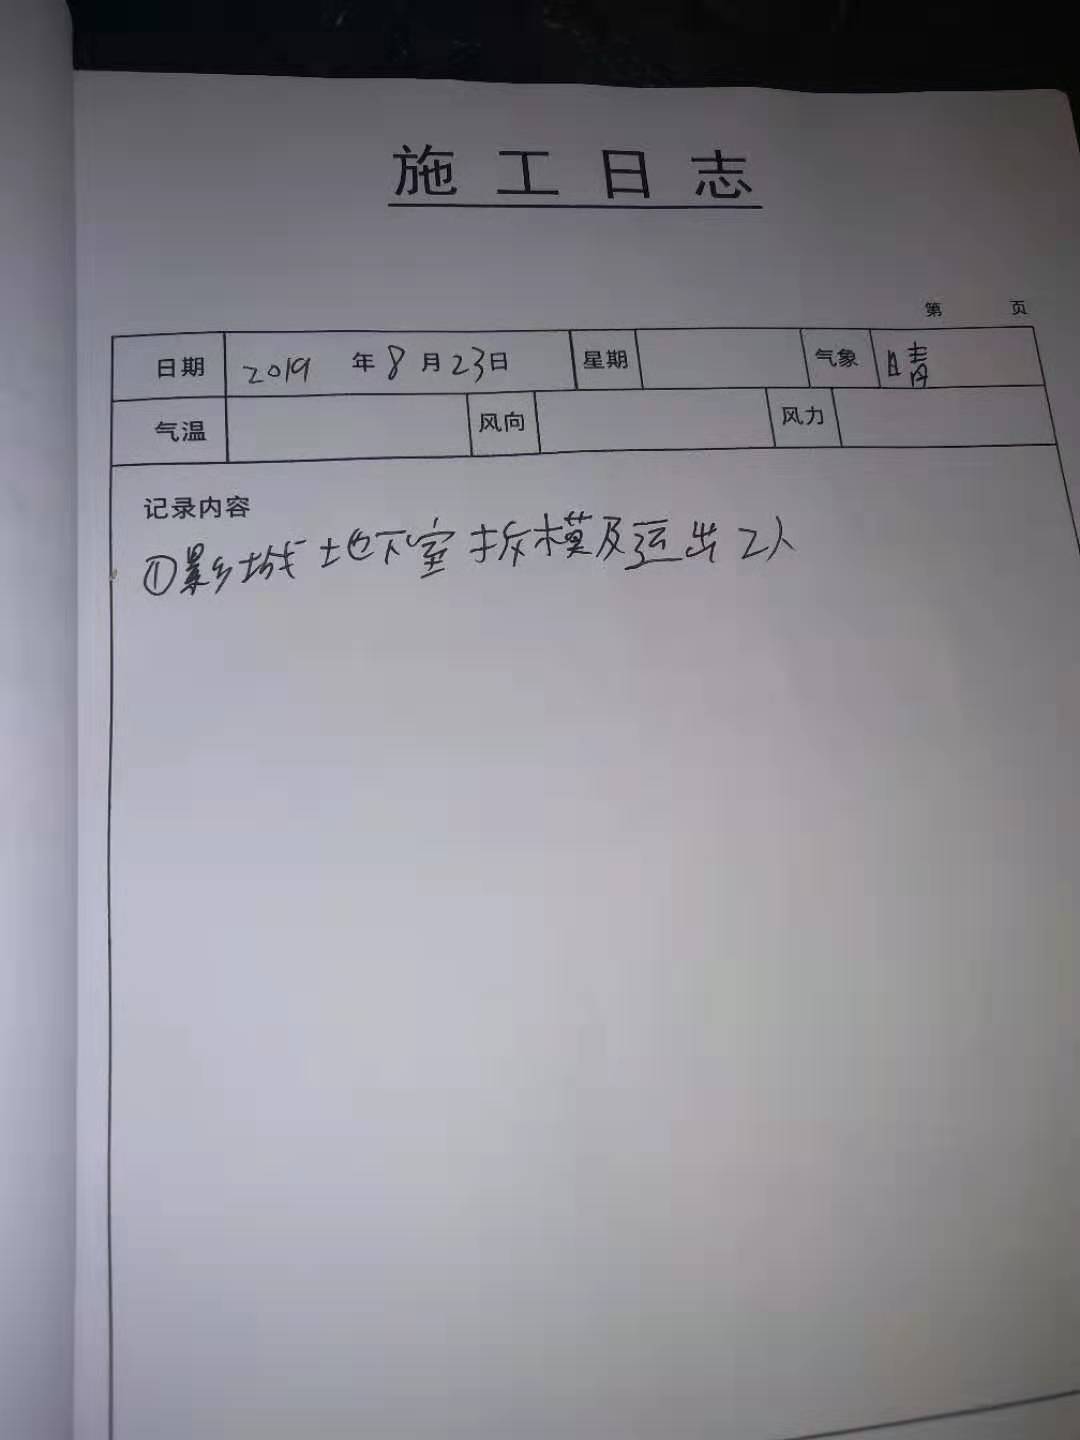 施工日志
第 页
日期 2019 年 8 月 23 日 星期 气象 晴
气温 风向 风力
记录内容
①影城地下室拆模及运出2人